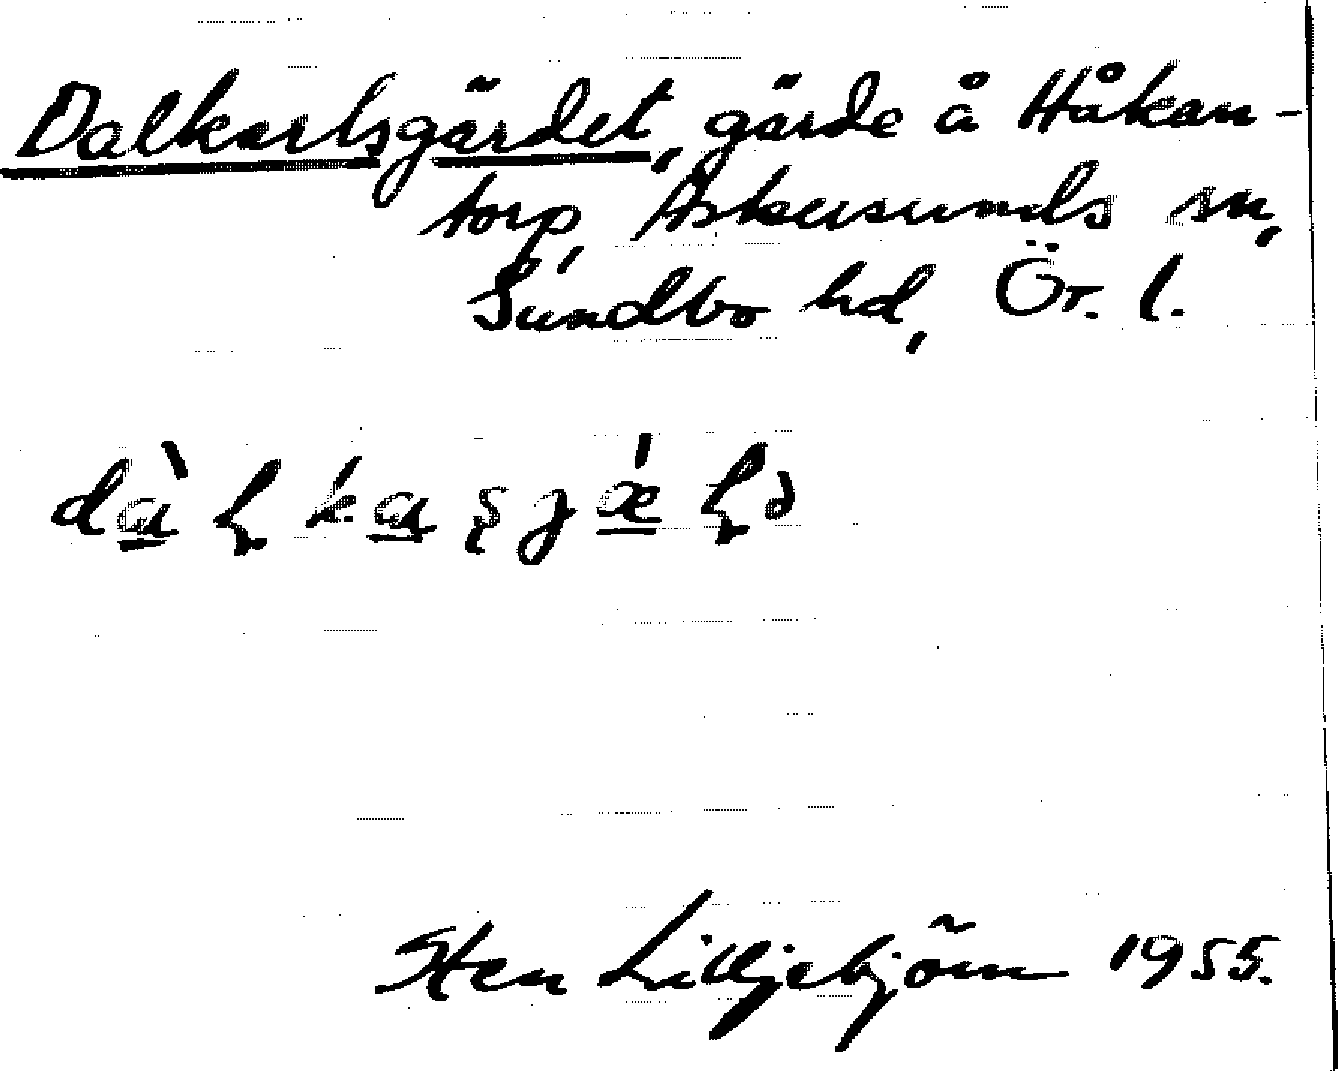 Dalkarlsgärdet, gärde å Håkan-
torp, Askersunds sn,
Sundbo hd, Ör. l.
Sten Lilljebjörn 1955.